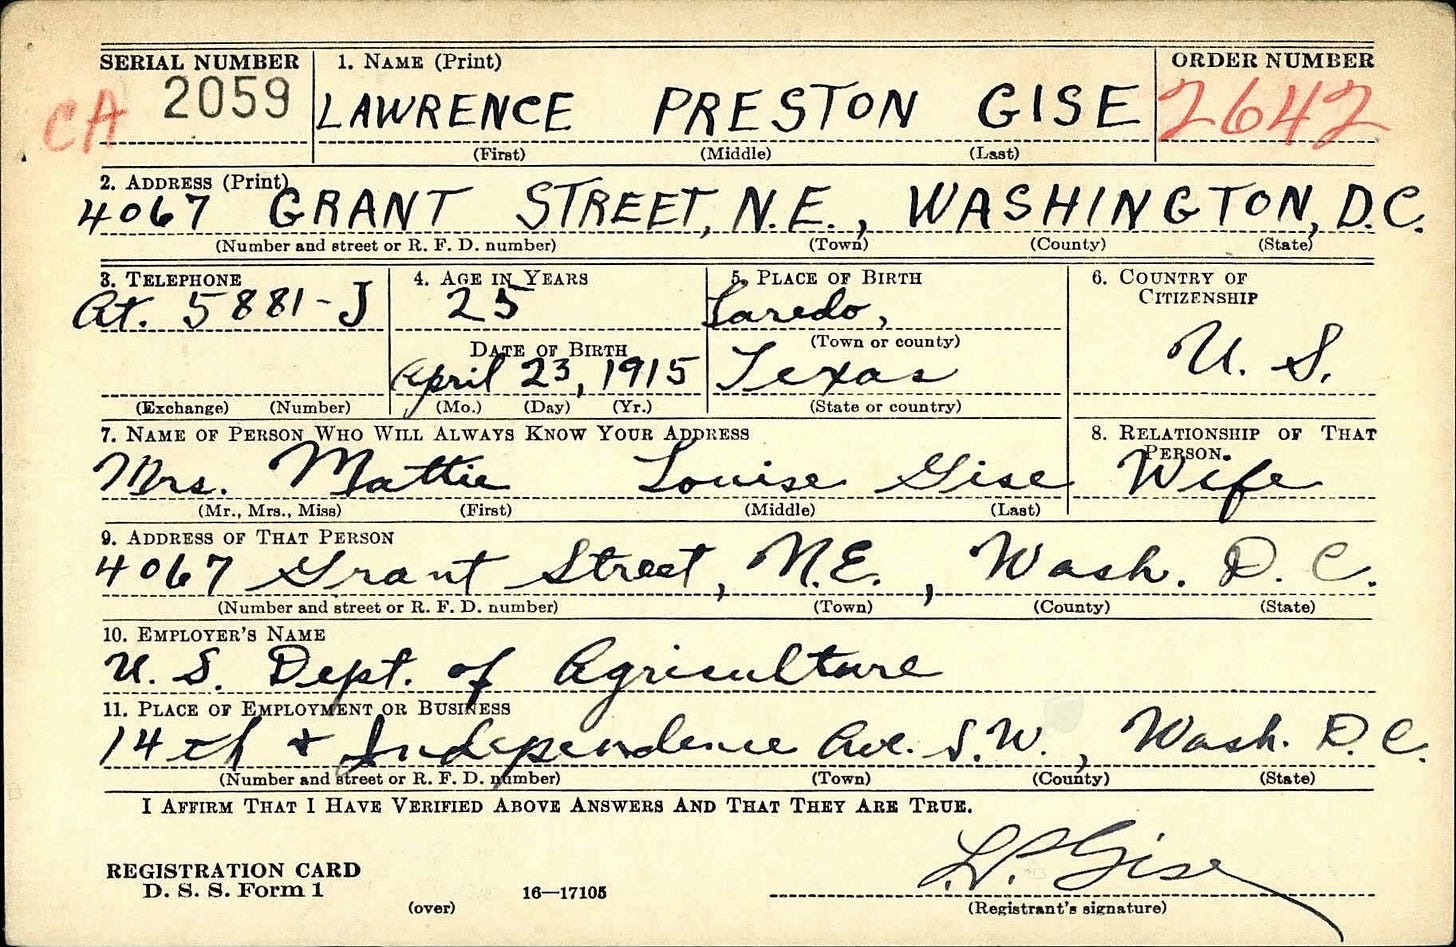 SERIAL NUMBER 1. NAME (Print) ORDER NUMBER
CA 2059 LAWRENCE PRESTON GISE 2642
(First) (Middle) (Last)
2. ADDRESS (Print)
4067 GRANT STREET, N.E., WASHINGTON, D.C.
(Number and street or R. F. D. number) (Town) (County) (State)
3. TELEPHONE 4. AGE IN YEARS 5. PLACE OF BIRTH 6. COUNTRY OF CITIZENSHIP
At. 5881-J 25 Laredo, U. S.
(Town or county)
DATE OF BIRTH
April 23, 1915 Texas
(Exchange) (Number) (Mo.) (Day) (Yr.) (State or country)
7. NAME OF PERSON WHO WILL ALWAYS KNOW YOUR ADDRESS 8. RELATIONSHIP OF THAT PERSON.
Mrs. Mattie Louise Gise Wife
(Mr., Mrs., Miss) (First) (Middle) (Last)
9. ADDRESS OF THAT PERSON
4067 Grant Street, N.E., Wash. D. C.
(Number and street or R. F. D. number) (Town) (County) (State)
10. EMPLOYER'S NAME
U. S. Dept. of Agriculture
11. PLACE OF EMPLOYMENT OR BUSINESS
14th & Independence Ave. S.W., Wash. D. C.
(Number and street or R. F. D. number) (Town) (County) (State)
I AFFIRM THAT I HAVE VERIFIED ABOVE ANSWERS AND THAT THEY ARE TRUE.
L.P. Gise
REGISTRATION CARD
D. S. S. Form 1 16—17105
(over) (Registrant's signature)